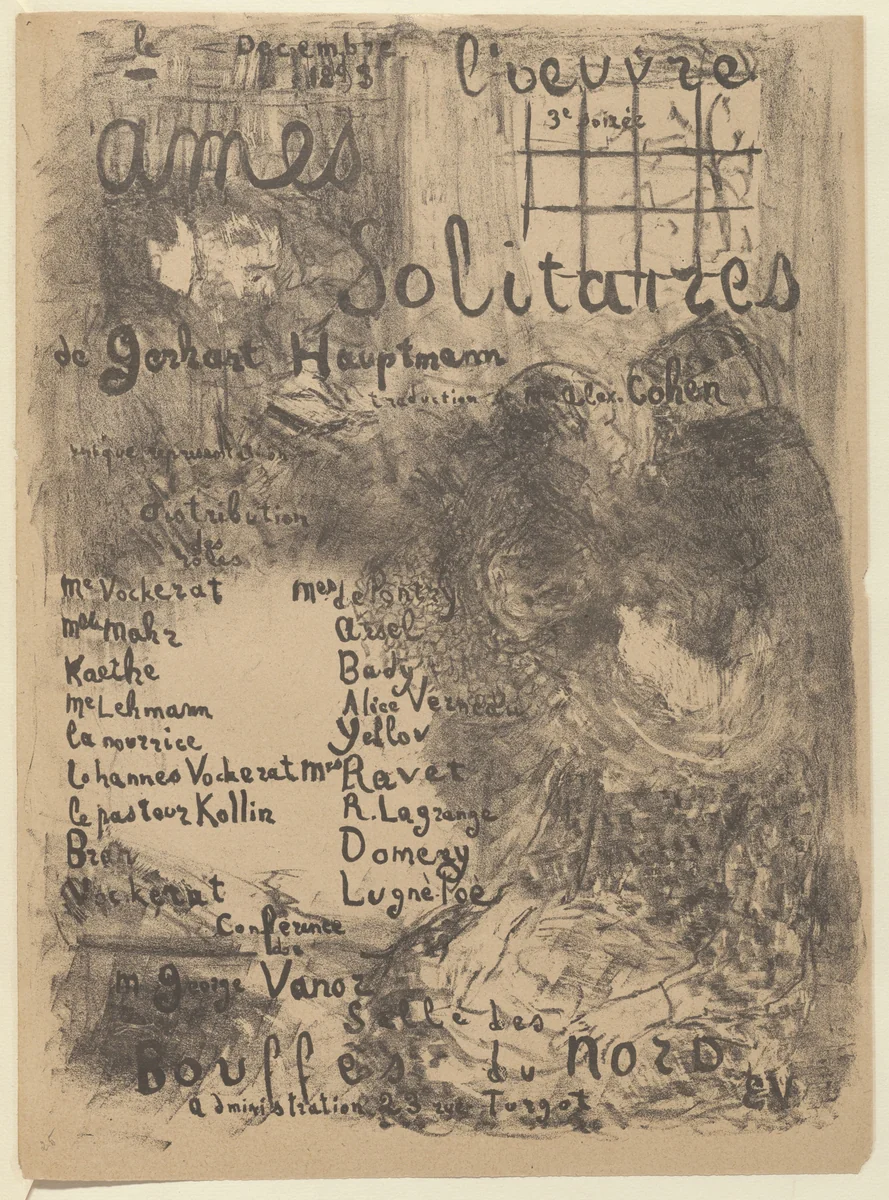 le — Decembre
1893
l'oeuvre
3e soirée
ames
Solitaires
de Gerhart Hauptmann
traduction de Mr alex. Cohen
unique représentation
distribution
des
roles
Me Vockerat Mes de Pontry
Melle Mahr arsel
Kaethe Bady
Me Lehmann Alice Verneau
la nourrice Yellov
Iohannes Vockerat Mrs Ravet
le pasteur Kollin R. Lagrange
Bran Domeny
Vockerat Lugné-Poë
Conférence
de
m George Vanor
Salle des
Bouffes du NORD
administration 23 rue Turgot
EV